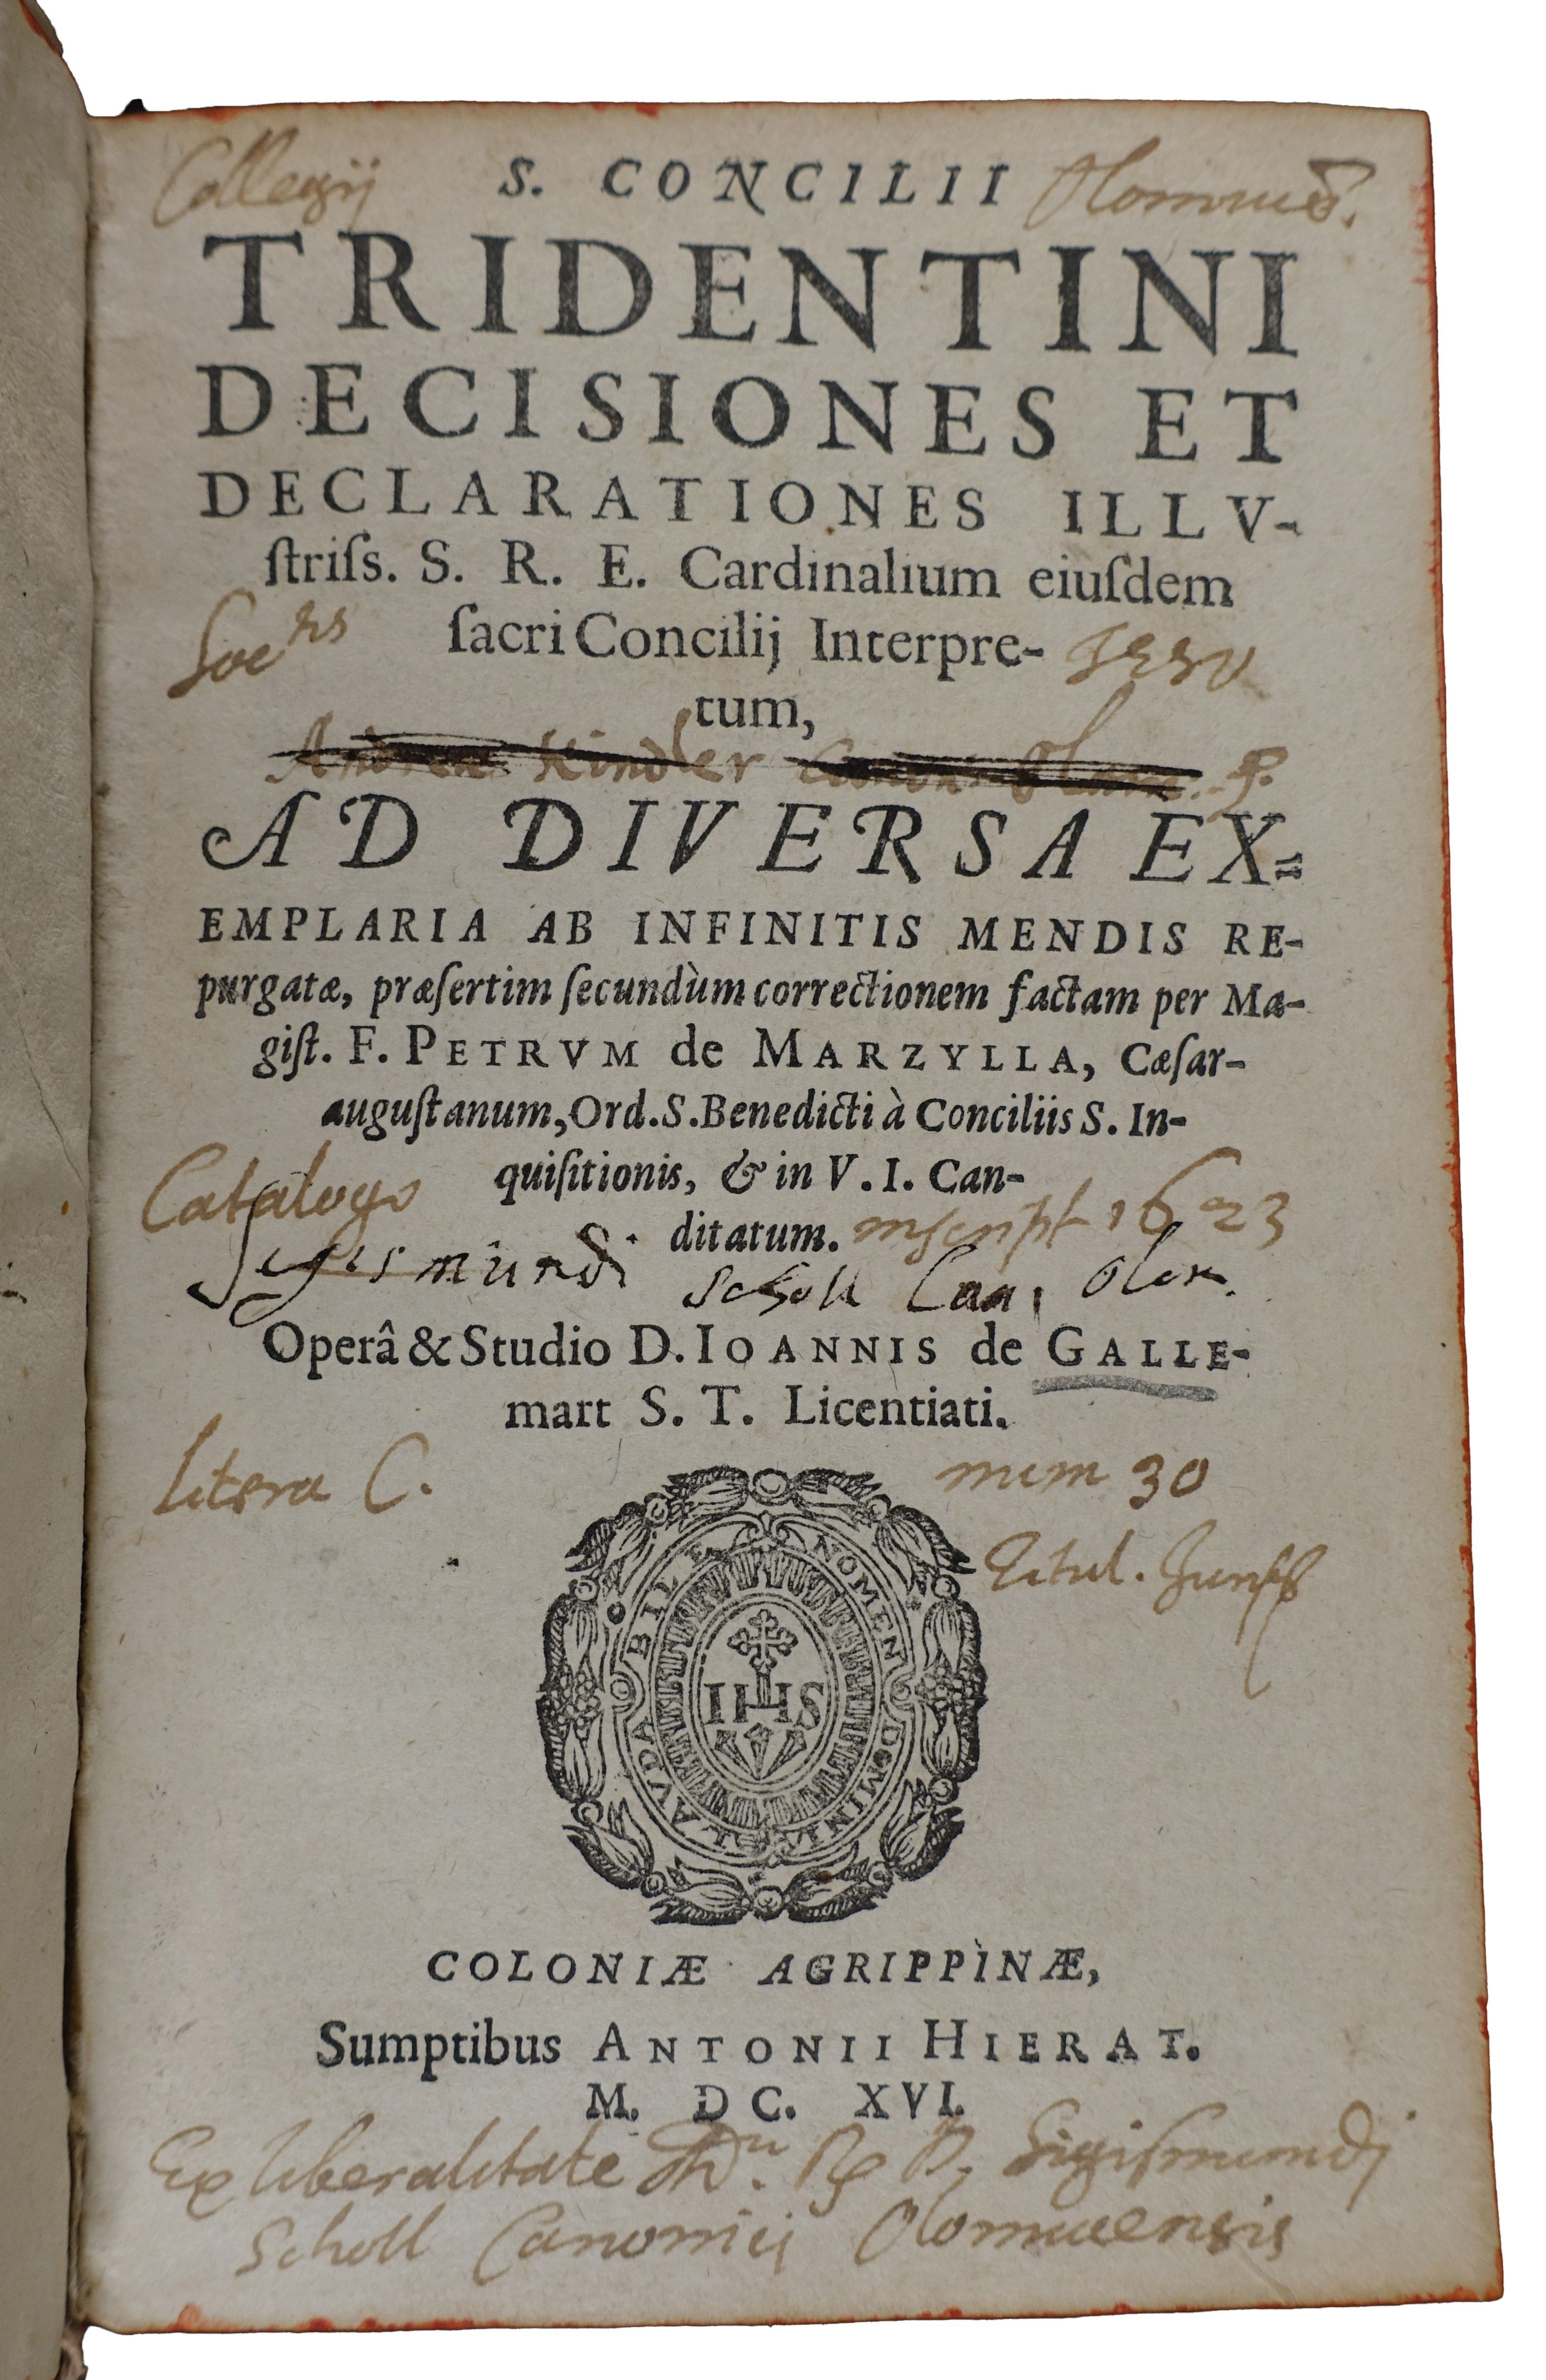 Collegij S. CONCILII Olomuc̄.
TRIDENTINI
DECISIONES ET
DECLARATIONES ILLV-
ſtriſs. S. R. E. Cardinalium eiuſdem
Soc^tis ſacri Concilij Interpre- JESV
tum,
Kindler
AD DIVERSA EX=
EMPLARIA AB INFINITIS MENDIS RE-
purgatæ, præſertim ſecundùm correctionem factam per Ma-
giſt. F. PETRVM de MARZYLLA, Cæſar-
auguſtanum, Ord. S. Benedicti à Conciliis S. In-
quiſitionis, & in V. I. Can-
Catalogo ditatum. inscript 1623
Segismundi Scholl Can. Olom.
Operâ & Studio D. IOANNIS de GALLE-
mart S. T. Licentiati.
Litera C. num 30
Titul.
LAVDABILE NOMEN DOMINI
IHS
COLONIÆ AGRIPPINÆ,
Sumptibus ANTONII HIERAT.
M. DC. XVI.
Ex liberalitate Sigismundi
Scholl Canonici Olomucensis